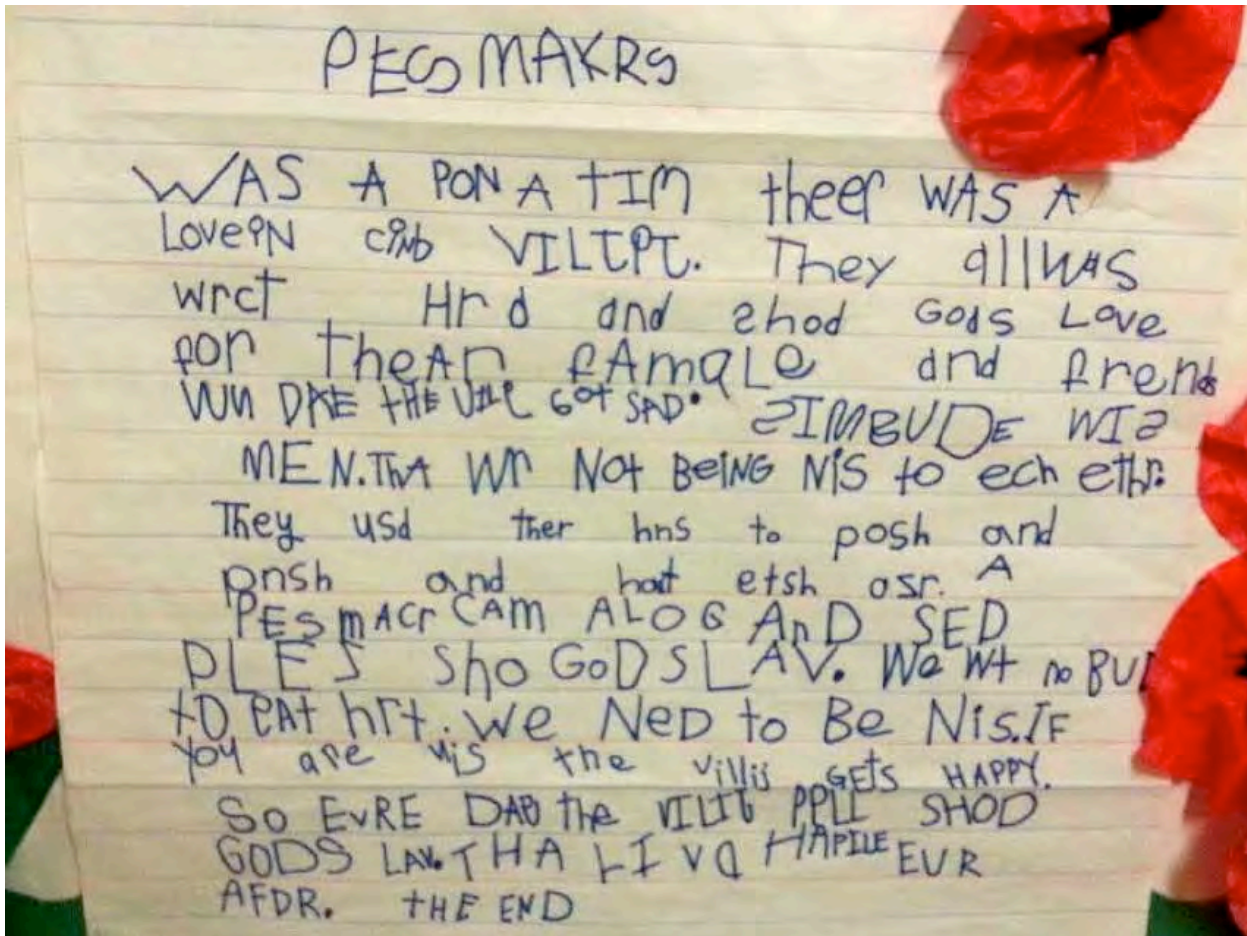 PEGS MAKRS
WAS A PON A TIM theer WAS A
LoveiN cinb VILIPT. They allWAS
wrct Hrd and shod Gods Love
for theAr fAmaLe and frends
WUN DAE tHE VILL Got SAD. SIMBUDE WIS
MEN.ThA Wr Not BeiNG NiS to ech ethr.
They usd ther hns to posh and
pnsh and hart etsh osr. A
PESmAcr CAm ALOG AnD SED
PLES Sho GoD S LAV. We wt no BUD
tO eAt hrt. we NeD to Be Nis.IF
you are nis the villij GEts HAPPY.
So EvRE DAE the VILIG PPLE SHOD
GODS LAV.THA LIVD HAPILE EUR
AFDR. tHE END